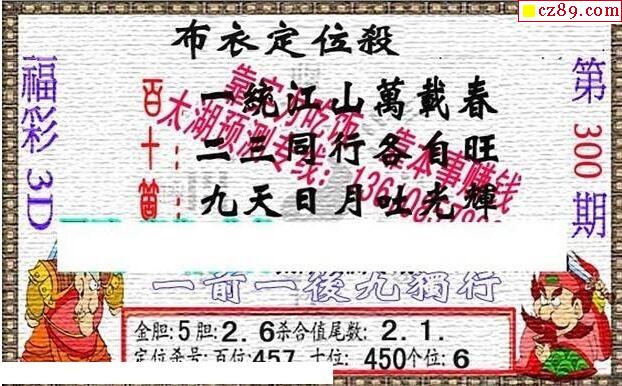 cz89.com
布衣定位殺
福彩3D
第300期
百:一統江山萬載春
十:二三同行各自旺
箇:九天日月吐光輝
太湖预测专线:
靠本事赚钱
一前一後九獨行
金胆:5胆:2.6杀合值尾数:2.1.
定位杀号:百位:457 十位:450个位:6